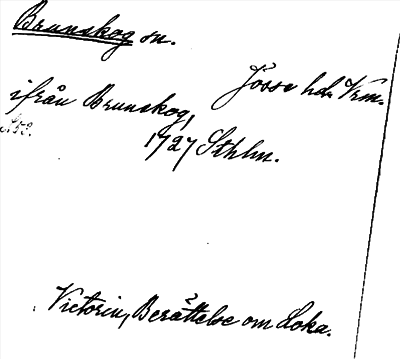 Brunskog sn.
Jösse hd. Vrm.
ifrån Brunskog,
S. 58.
1727 Sthlm.
Victorin, Berättelse om Loka.